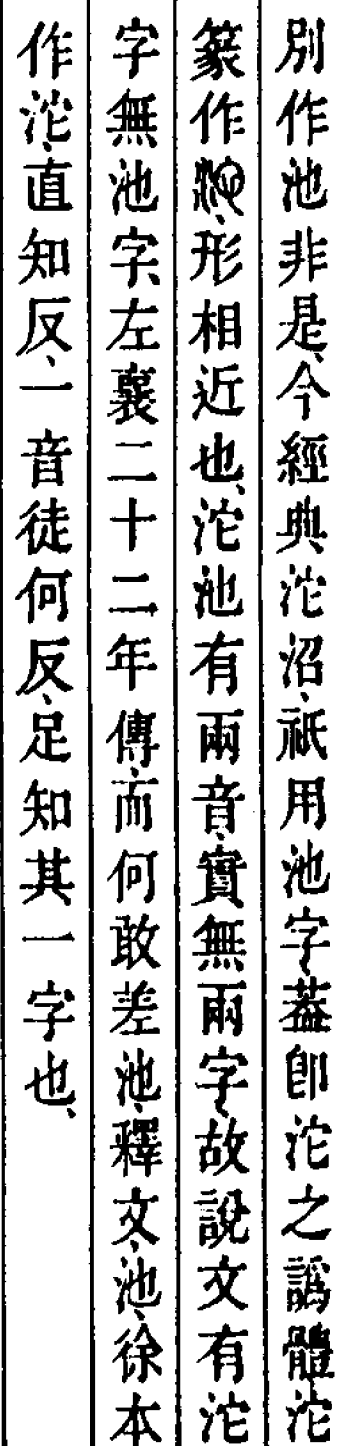 別作池非是、今經典沱沼、祇用池字、蓋卽沱之譌體、沱
篆作、形相近也、沱池有兩音、實無兩字、故說文有沱
字無池字、左襄二十二年傳、而何敢差池、釋文、池、徐本
作沱、直知反、一音徒何反、足知其一字也、